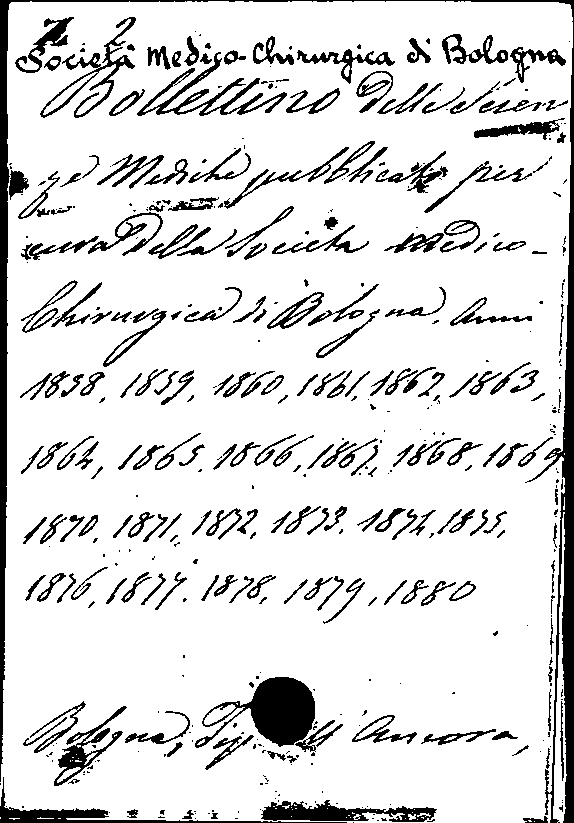 Z 2
Società Medico-Chirurgica di Bologna
Bollettino delle Scien
ze Mediche pubblicato per
cura della Società medico-
Chirurgica di Bologna. Anni
1858, 1859, 1860, 1861, 1862, 1863,
1864, 1865, 1866, 1867, 1868, 1869
1870, 1871, 1872, 1873, 1874, 1875,
1876, 1877, 1878, 1879, 1880
Bologna, Tip. all' Ancora,